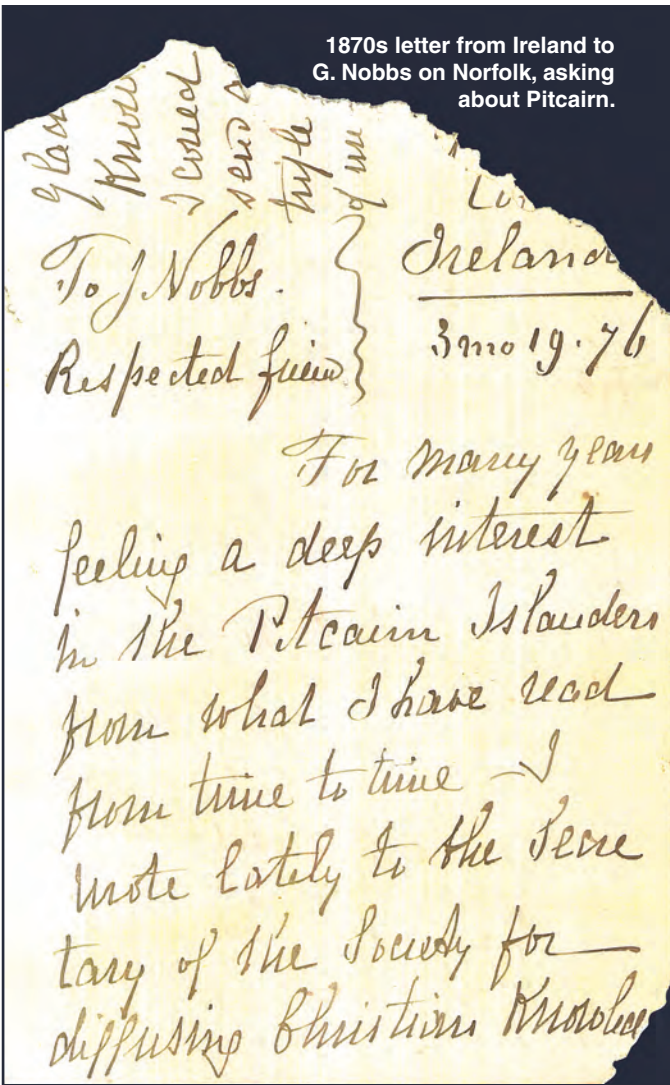 1870s letter from Ireland to
G. Nobbs on Norfolk, asking
about Pitcairn.
glad
Know
I could
send a
trifle
of
Ireland
3mo 19. 76
To J Nobbs.
Respected frien
For many years
feeling a deep interest
in the Pitcairn Islanders
from what I have read
from time to time – I
wrote lately to the Secre
tary of the Society for
diffusing Christian Knowled